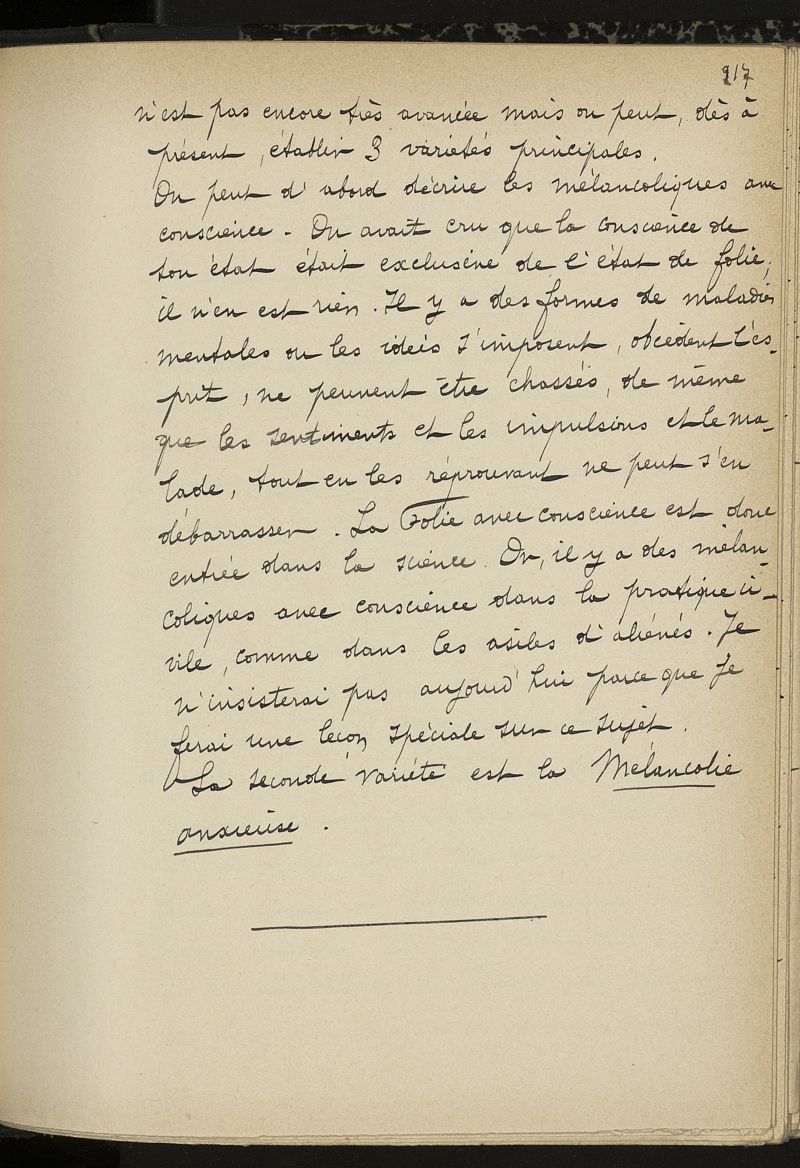 217
n'est pas encore très avancée mais on peut, dès à
présent, établir 3 variétés principales.
On peut d'abord décrire les mélancoliques avec
conscience. On avait cru que la conscience de
son état était exclusive de l'état de folie,
il n'en est rien. Il y a des formes de maladies
mentales ou les idées s'imposent, obcèdent l'es-
prit, ne peuvent être chassés, de même
que les sentiments et les impulsions et le ma-
lade, tout en les réprouvant ne peut s'en
débarrasser. La Folie avec conscience est donc
entrée dans la science. Or, il y a des mélan-
coliques avec conscience dans la pratique ci-
vile, comme dans les asiles d'aliénés. Je
n'insisterai pas aujourd'hui parce que je
ferai une leçon spéciale sur ce sujet.
La seconde variété est la Mélancolie
anxieuse.